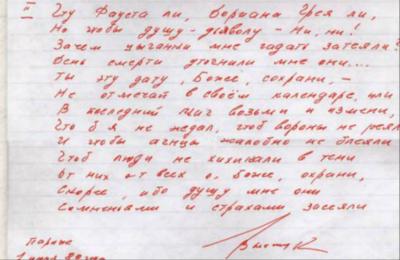 II Чту Фауста ли, Дориана Грея ли,
Но чтобы душу - дьяволу - ни, ни!
Зачем цыганки мне гадать затеяли?
День смерти уточнили мне они....
Ты эту дату, Боже, сохрани, -
Не отмечай в своём календаре, или
В последний миг возьми и измени,
Чтоб я не ждал, чтоб вороны не реяли
И чтобы агнцы жалобно не блеяли
Чтоб люди не хихикали в тени
От них от всех о, Боже, охрани,
Скорее, ибо душу мне они
Сомненьями и страхами засеяли
Париж